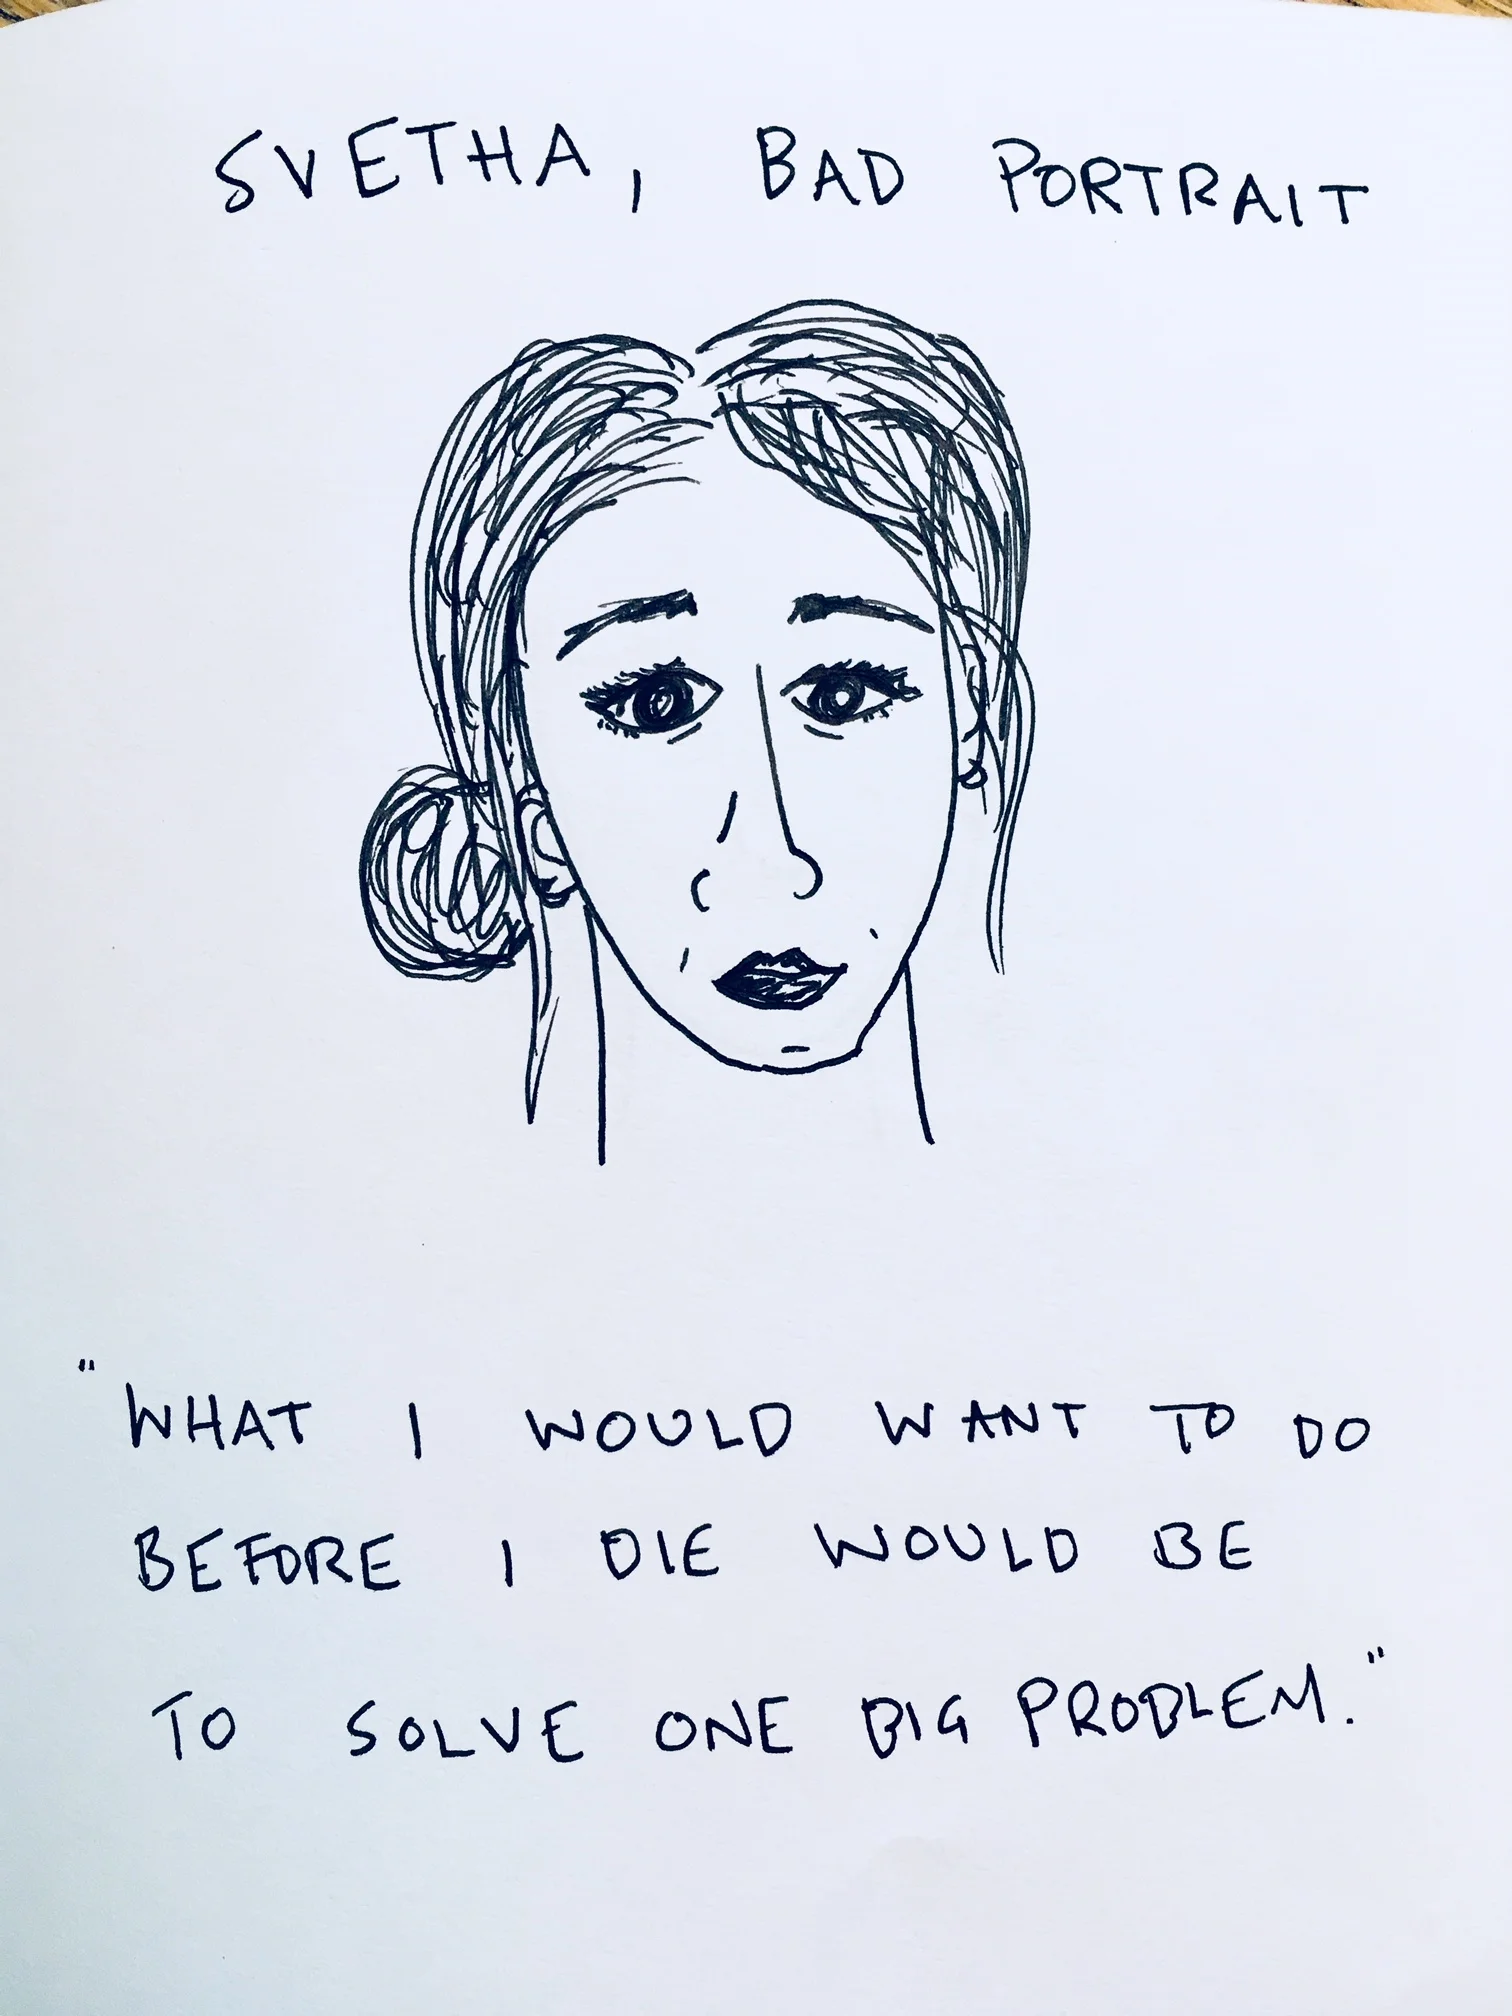 SVETHA, BAD PORTRAIT
"WHAT I WOULD WANT TO DO
BEFORE I DIE WOULD BE
TO SOLVE ONE BIG PROBLEM."